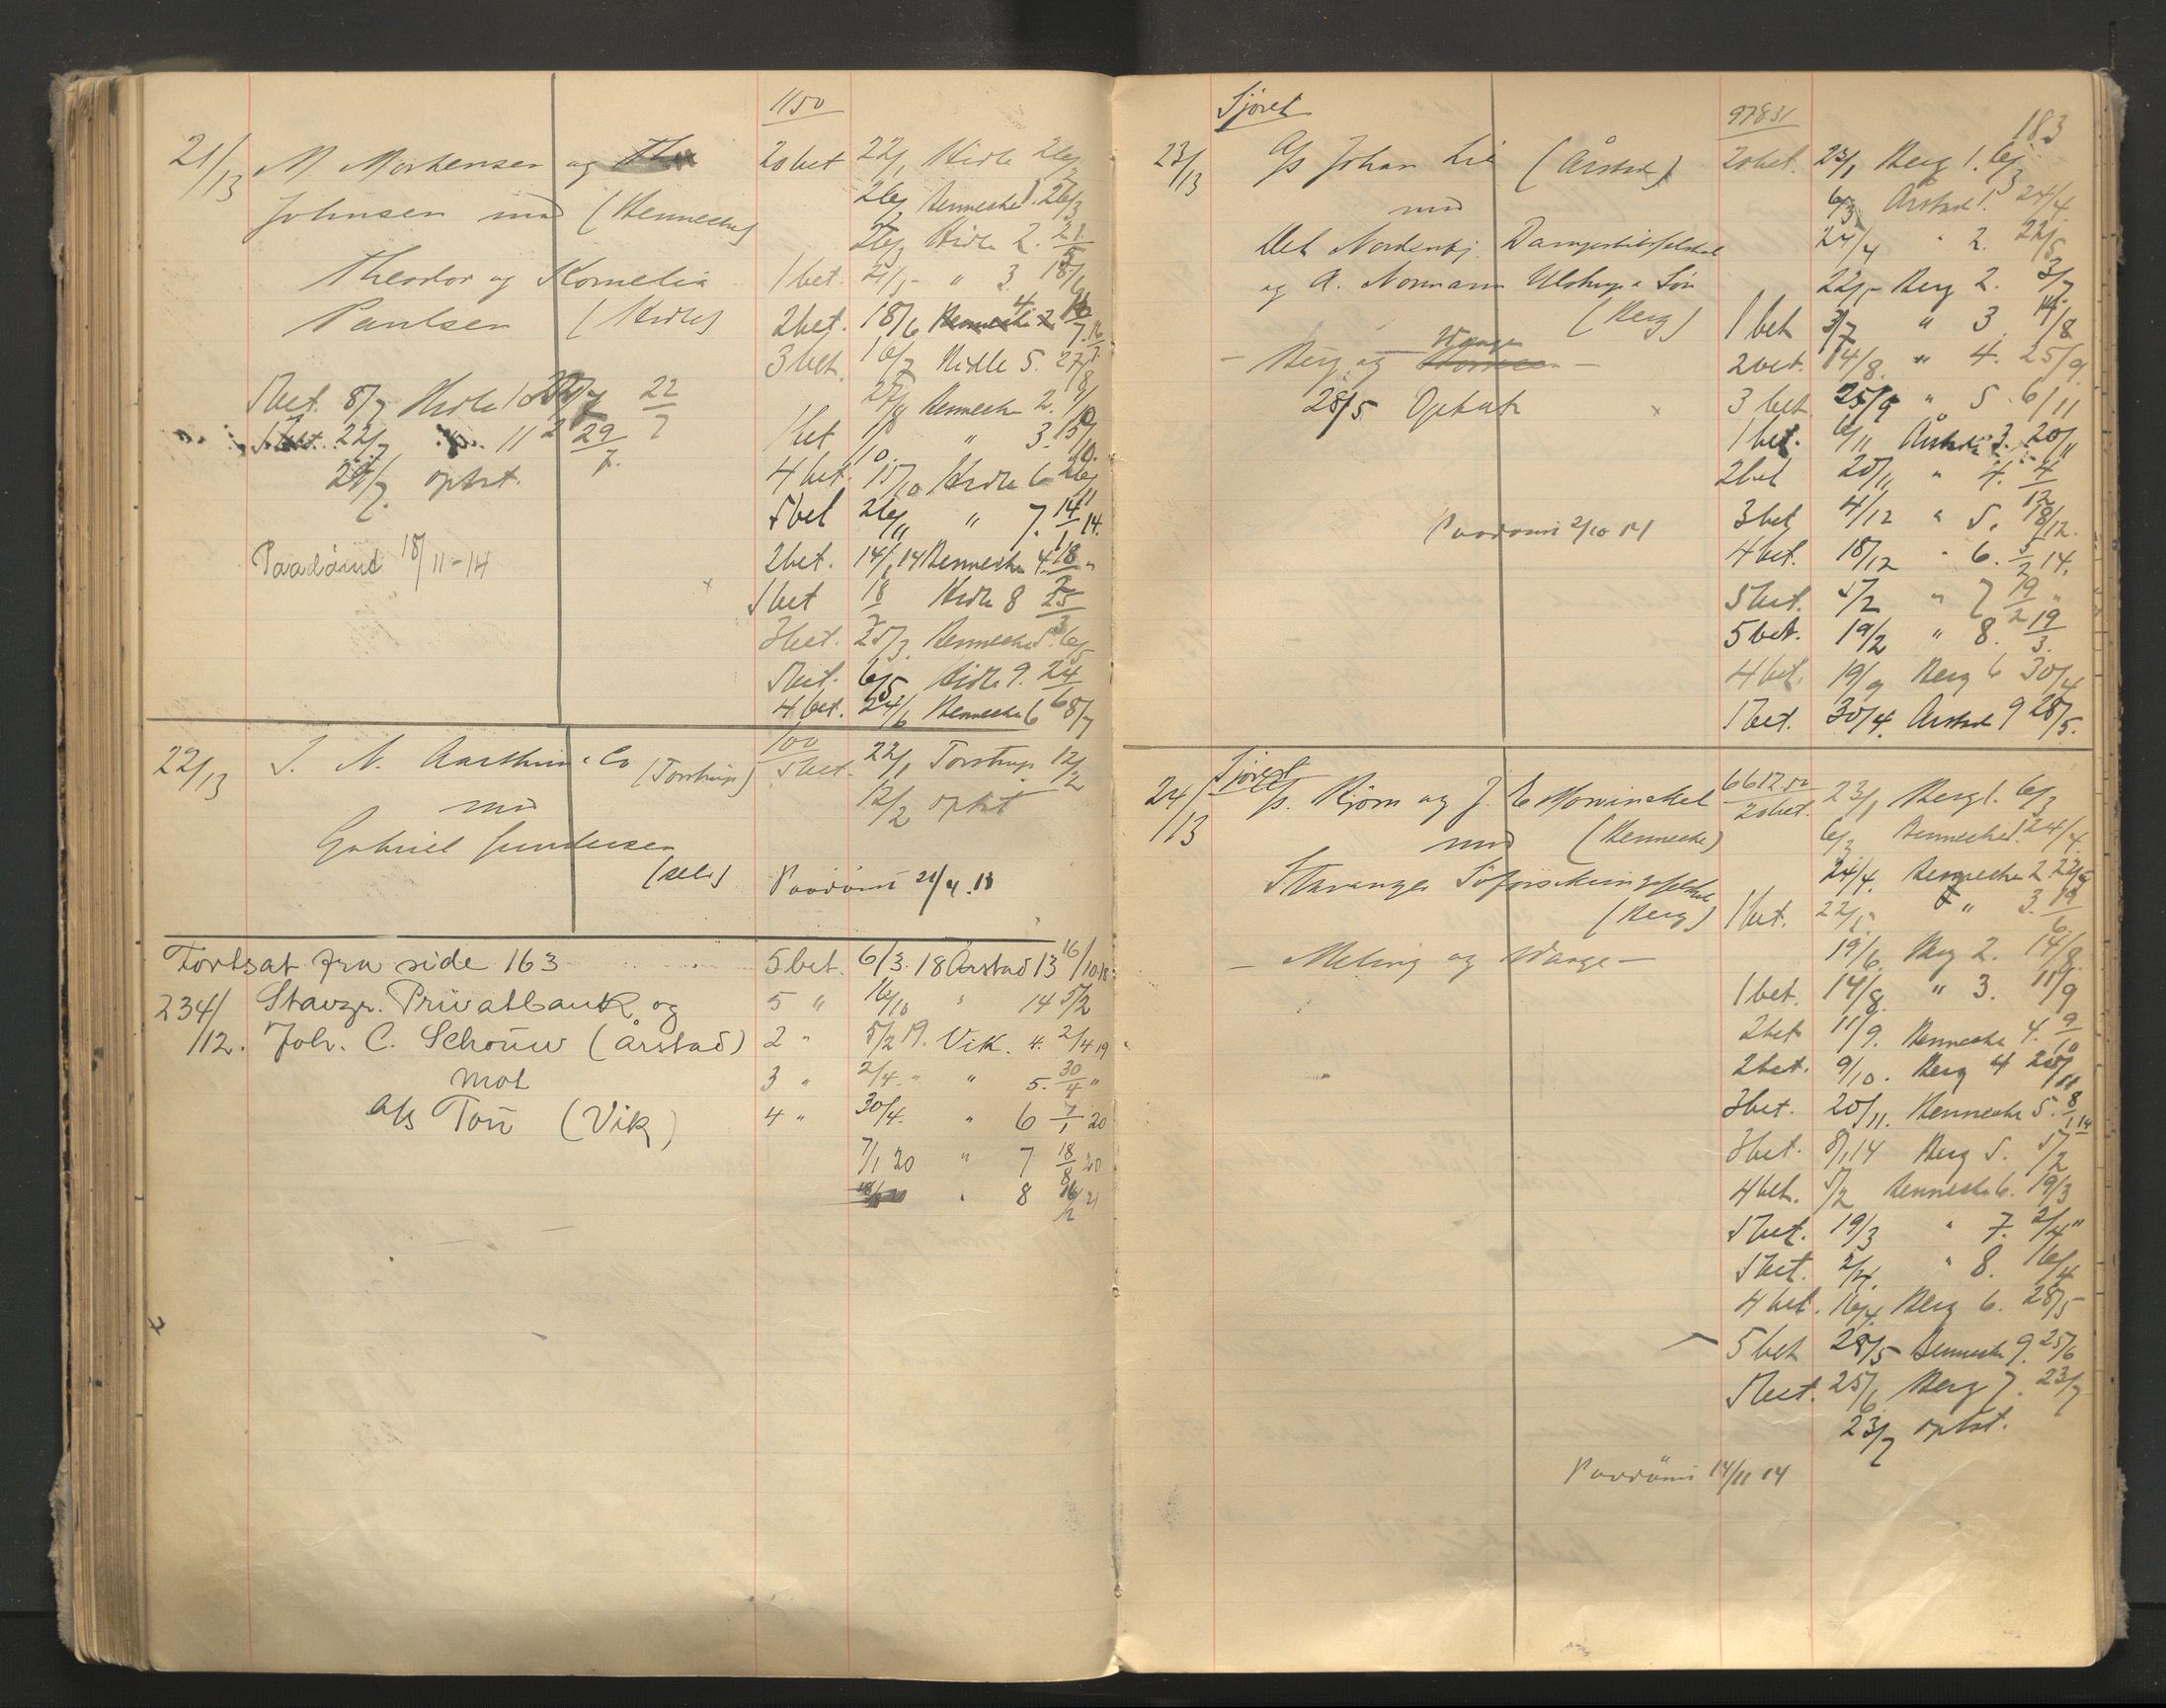 1150
21/13 M. Mortensen og 20 bet 22/1 Hidle 26/2
Johnsen mod (Benneche) 26/2 Benneche 1. 26/3
26/3 Hidle 2. 21/5
Theodor og Kornelia 1 bet. 21/5 " 3 18/6
Paulsen (Hidle) 2 bet. 18/6 4 16/7
3 bet. 16/7 Hidle 5. 27/8
5 bet. 8/7 Hidle 10 22/7
27/8 Benneche 2. 1/10
22/7 11 29/7
1 bet 1/10 " 3. 15/10
29/7 optat.
4 bet. 15/10 Hidle 6 26/11
5 bet 26/11 " 7. 14/1 14.
Paadømt 18/11-14
2 bet. 14/1 14 Benneche 4. 18/2 "
5 bet 18/2 Hidle 8 25/3
3 bet. 25/3 Benneche 5. 6/5
5 bet. 6/5 Hidle 9. 24/6
4 bet. 24/6 Benneche 6 8/7
100
22/13 & Co (Torstrup) 5 bet. 22/1 Torstrup 12/2
mod 12/2 optat
Gabriel Gundersen
(selv) Paadømt 21/4.13
Fortsat fra side 163 5 bet. 6/3. 18 Årstad 13 16/10 18
234/12. Stavgr. Privatbank og 5 " 16/10 " 14 5/2
Joh. C. Schouw (Årstad) 2 " 5/2 19. Vik. 4. 2/4 19
mot 3 " 2/4. " " 5. 30/4 "
A/s Tou (Vik) 4 " 30/4. " 6 7/1 20
7/1 20 " 7 18/8 20
" 8 21
183
Sjøret 97831
23/13 A/s Johan Lie (Årstad) 20 bet. 23/1 Berg 1. 6/3
mod 6/3 Årstad 1. 24/4.
Det Nordenfj. Dampskibsselskab 24/4 " 2. 22/5
og A. Normann Ulstrup & Søn 22/5 Berg 2. 3/7
(Berg) 1 bet 3/7 " 3 14/8
— Berg og Waage — 2 bet. 14/8. " 4. 25/9.
28/5 Optat 3 bet 25/9 " 5. 6/11
1 bet. 6/11 Årstad 3. 20/11
2 bet 20/11 " 4. 4/12
Paadømt 2/10 14 3 bet 4/12 " 5. 18/12.
4 bet. 18/12 " 6. 5/2 14.
5 bet. 5/2 " 7 19/2 "
5 bet. 19/2 " 8. 19/3.
4 bet. Berg 6 30/4
5 bet. 30/4. Årstad 9 28/5.
Sjøret
24/13 A/s. Bjørn og J. E. Mowinckel 6612.50 20 bet. 23/1 Berg 1. 6/3
mod (Benneche) 6/3 Benneche 1 24/4.
Stavanger Søforsikringsselskab 24/4. Benneche 2 22/5
(Berg) 1 bet. 22/5 " 3. 19/6
— Meling og Waage — 19/6. Berg 2. 14/8.
1 bet. 14/8. " 3. 11/9
2 bet 11/9. Benneche 4. 9/10
2 bet. 9/10. Berg 4 20/11
3 bet. 20/11. Benneche 5. 8/1 14
3 bet. 8/1 14 Berg 5. 5/2
4 bet. 5/2 Benneche 6. 19/3
5 bet. 19/3 " 7. 2/4 "
5 bet. 2/4. " 8. 16/4
4 bet. 16/4. Berg 6. 28/5
5 bet 28/5 Benneche 9. 25/6
5 bet. 25/6 Berg 7. 23/7
23/7 optat.
Paadømt 14/11 14